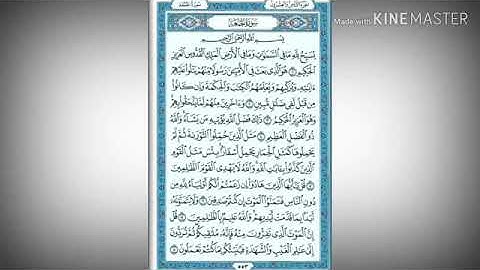 Made with KINEMASTER
سُورَةُ الجُمُعَةِ
بِسْمِ اللَّهِ الرَّحْمَٰنِ الرَّحِيمِ
يُسَبِّحُ لِلَّهِ مَا فِي السَّمَٰوَٰتِ وَمَا فِي الْأَرْضِ الْمَلِكِ الْقُدُّوسِ الْعَزِيزِ
الْحَكِيمِ ١ هُوَ الَّذِي بَعَثَ فِي الْأُمِّيِّينَ رَسُولًا مِّنْهُمْ يَتْلُوا عَلَيْهِمْ
ءَايَٰتِهِ وَيُزَكِّيهِمْ وَيُعَلِّمُهُمُ الْكِتَٰبَ وَالْحِكْمَةَ وَإِن كَانُوا
مِن قَبْلُ لَفِي ضَلَٰلٍ مُّبِينٍ ٢ وَءَاخَرِينَ مِنْهُمْ لَمَّا يَلْحَقُوا بِهِمْ
وَهُوَ الْعَزِيزُ الْحَكِيمُ ٣ ذَٰلِكَ فَضْلُ اللَّهِ يُؤْتِيهِ مَن يَشَاءُ وَاللَّهُ
ذُو الْفَضْلِ الْعَظِيمِ ٤ مَثَلُ الَّذِينَ حُمِّلُوا التَّوْرَىٰةَ ثُمَّ لَمْ
يَحْمِلُوهَا كَمَثَلِ الْحِمَارِ يَحْمِلُ أَسْفَارًا بِئْسَ مَثَلُ الْقَوْمِ
الَّذِينَ كَذَّبُوا بِـَٔايَٰتِ اللَّهِ وَاللَّهُ لَا يَهْدِي الْقَوْمَ الظَّٰلِمِينَ
٥ قُلْ يَٰٓأَيُّهَا الَّذِينَ هَادُوا إِن زَعَمْتُمْ أَنَّكُمْ أَوْلِيَاءُ لِلَّهِ مِن
دُونِ النَّاسِ فَتَمَنَّوُا الْمَوْتَ إِن كُنتُمْ صَٰدِقِينَ ٦ وَلَا يَتَمَنَّوْنَهُ
أَبَدًا بِمَا قَدَّمَتْ أَيْدِيهِمْ وَاللَّهُ عَلِيمٌ بِالظَّٰلِمِينَ ٧ قُلْ
إِنَّ الْمَوْتَ الَّذِي تَفِرُّونَ مِنْهُ فَإِنَّهُ مُلَٰقِيكُمْ ثُمَّ تُرَدُّونَ
إِلَىٰ عَٰلِمِ الْغَيْبِ وَالشَّهَٰدَةِ فَيُنَبِّئُكُم بِمَا كُنتُمْ تَعْمَلُونَ ٨
٥٥٣